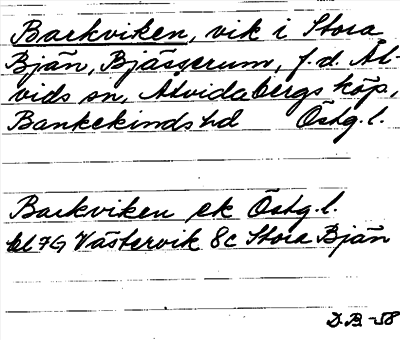 Barkviken, vik i Stora
Bjän, Bjäsgerum, f.d. Åt-
vids sn, Åtvidabergs köp,
Bankekinds hd Östg.l.
Barkviken ek Östg.l.
bl 7G Västervik 8c Stora Bjän
D.B. -58